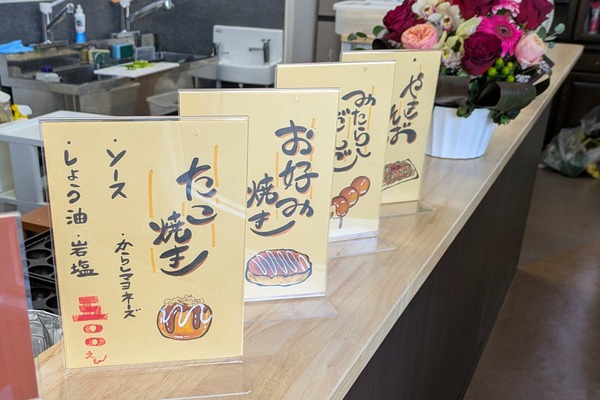 たこ焼き
・ソース
・からしマヨネーズ
・しょう油
・岩塩
五〇〇えん
お好み焼き
みたらしだんご
やきそば